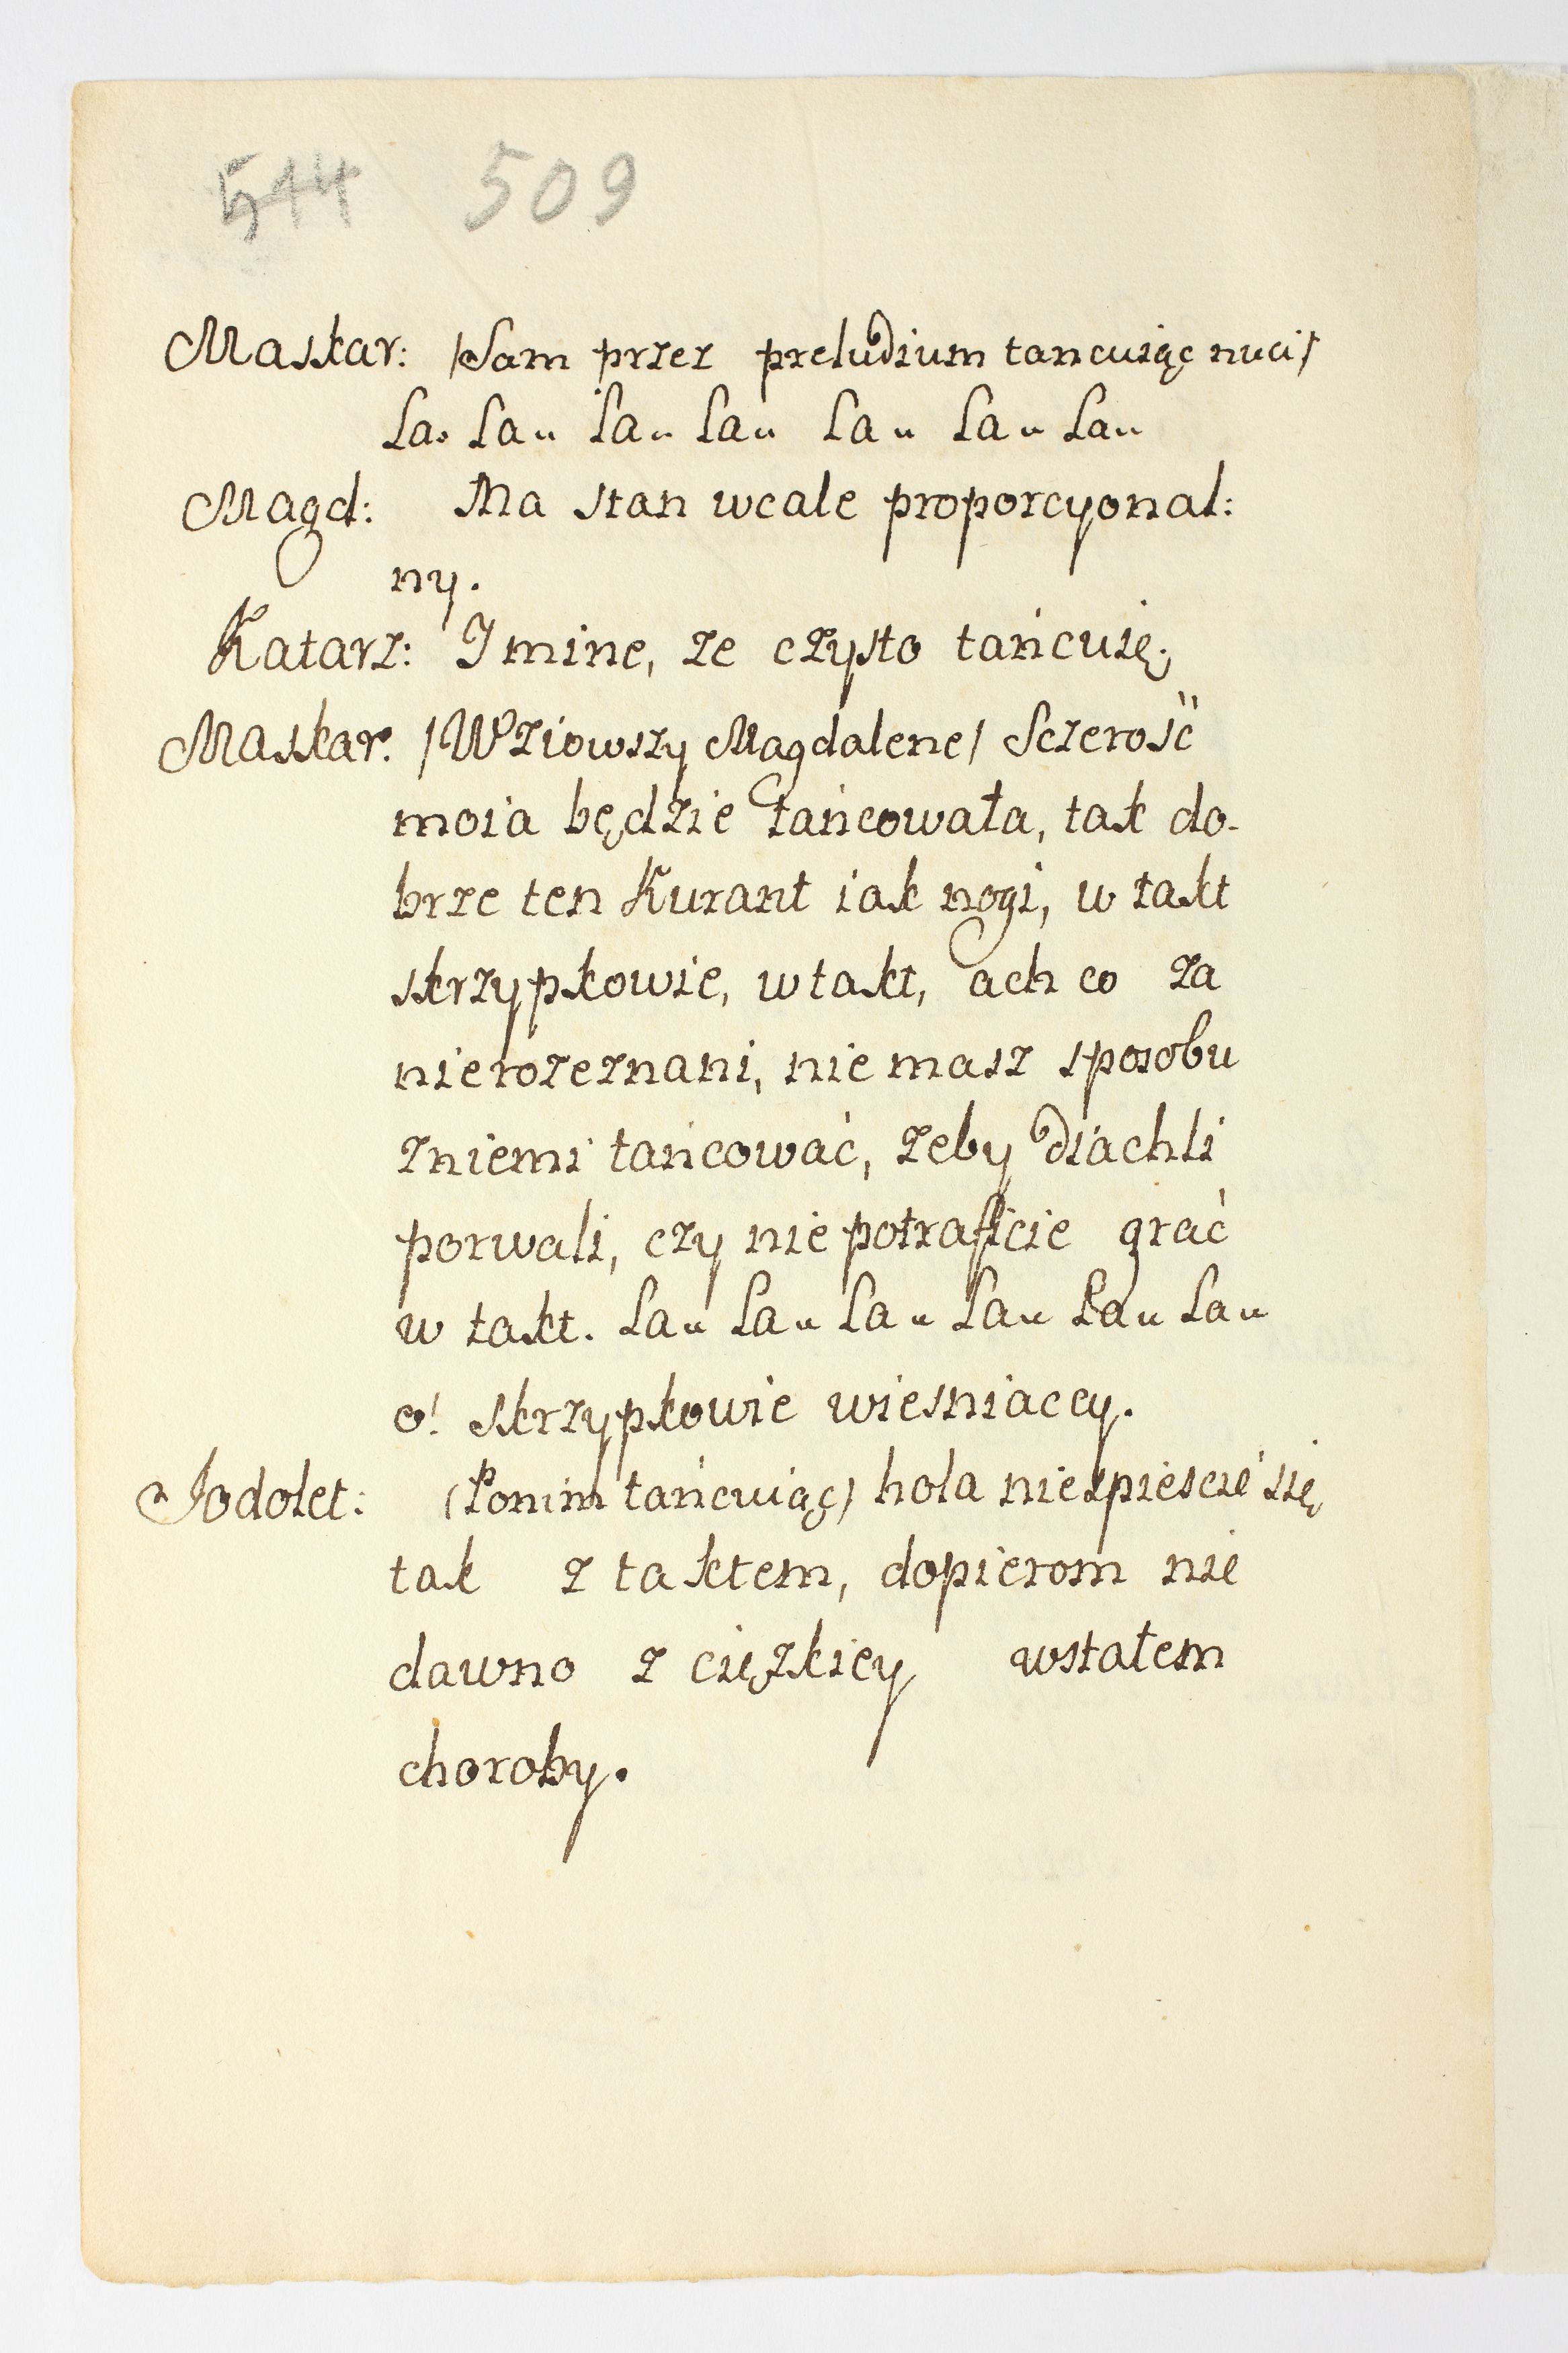 544 509
Maskar: /Sam przez preludium tancuiąc nuci/
La. La„ La„ La„ La„ La„ La„
Magd: Ma stan wcale proporcyonal:
ny.
Katarz: I mine, ze czysto tańcuię.
Maskar: /Wziowszy Magdalene/ Sczerość
moia będzie tańcowała, tak do-
brze ten Kurant iak nogi, w takt
skrzypkowie, w takt, ach co za
nierozeznani, nie masz sposobu
zniemi tańcować, zeby diachli
porwali, czy nie potraficie grać
w takt. La„ La„ La„ La„ La„ La„
o! skrzypkowie wiesniaccy.
Jodolet: (Ponim tańcuiąc) hola niespiescie się
tak z taktem, dopierom nie
dawno z cięzkiey wstałem
choroby.